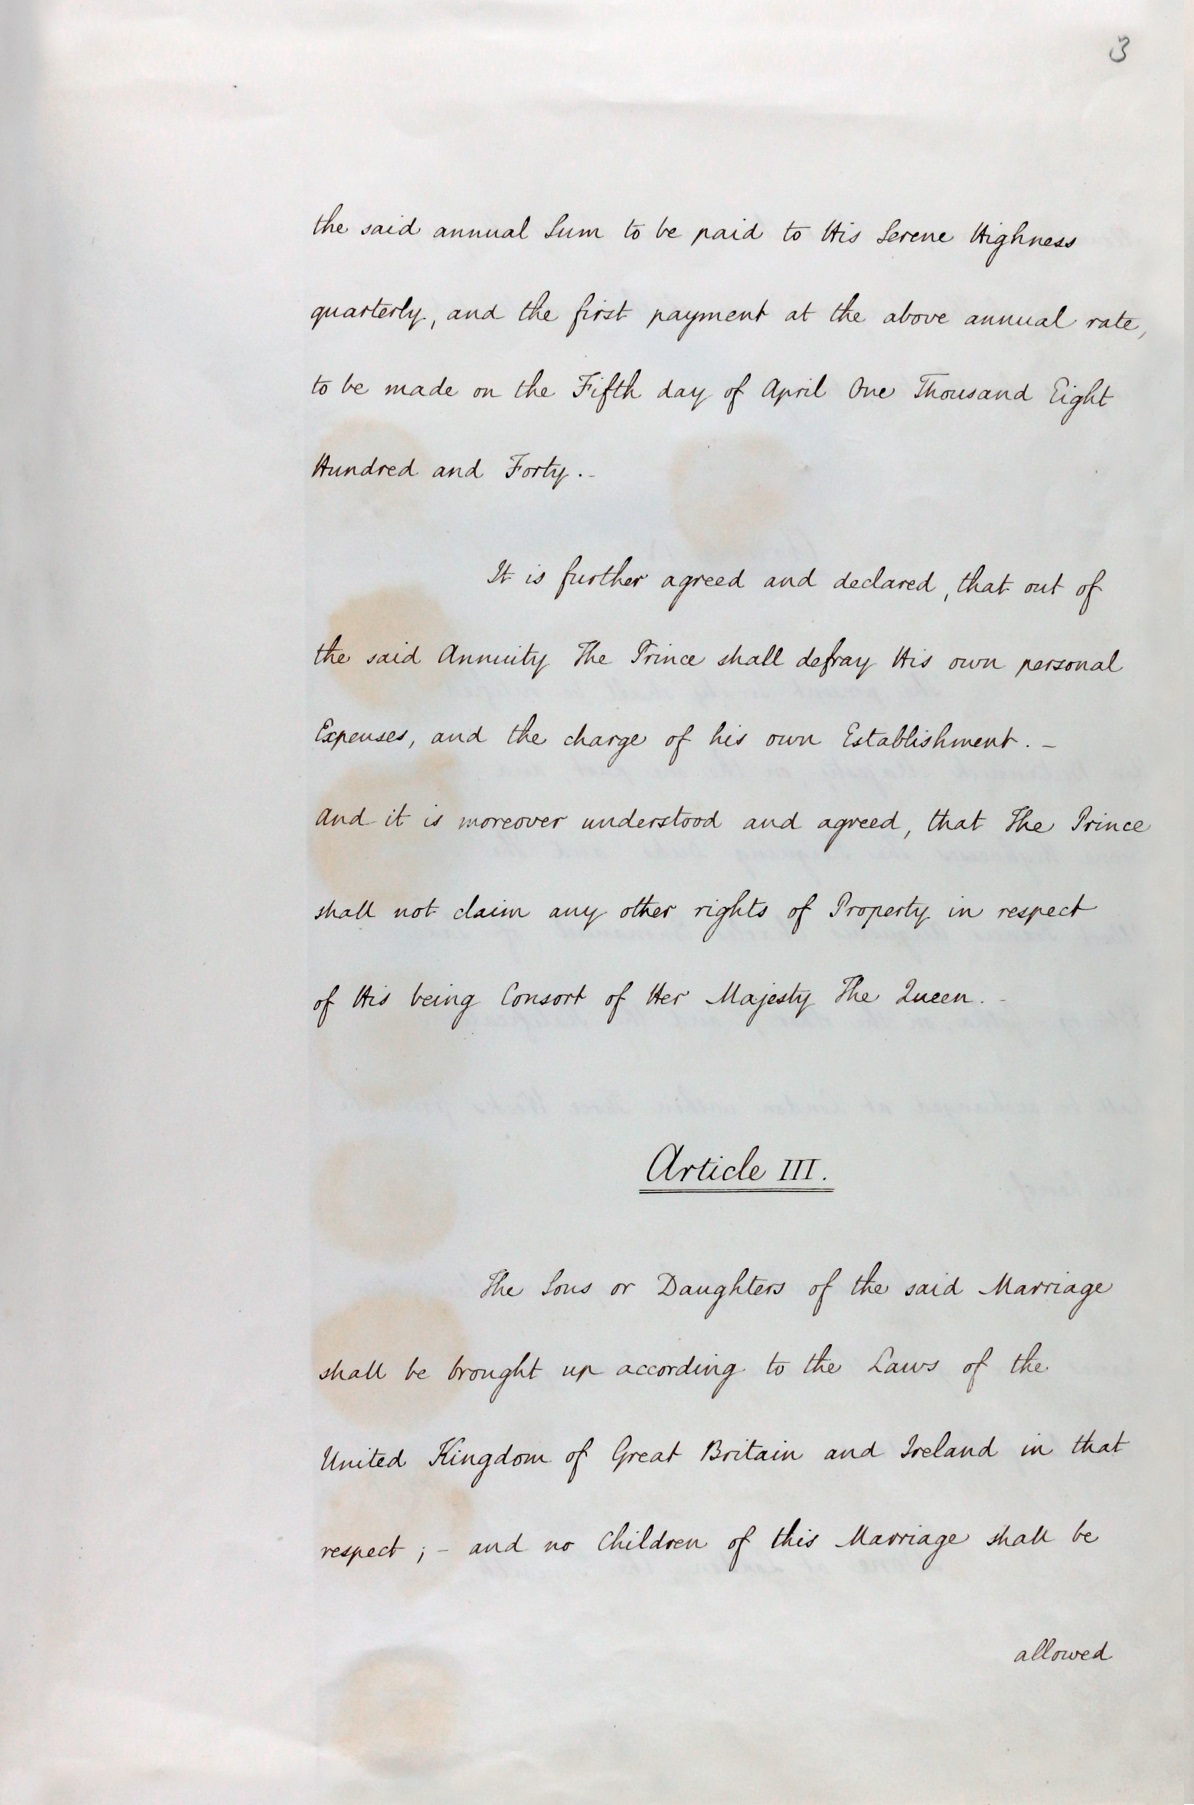 3
the said annual Sum to be paid to His Serene Highness
quarterly, and the first payment at the above annual rate,
to be made on the Fifth day of April One Thousand Eight
Hundred and Forty.-
It is further agreed and declared, that out of
the said Annuity The Prince shall defray His own personal
Expenses, and the charge of his own Establishment. -
And it is moreover understood and agreed, that The Prince
shall not claim any other rights of Property in respect
of His being Consort of Her Majesty The Queen. -
Article III.
The Sons or Daughters of the said Marriage
shall be brought up according to the Laws of the
United Kingdom of Great Britain and Ireland in that
respect; - and no Children of this Marriage shall be
allowed